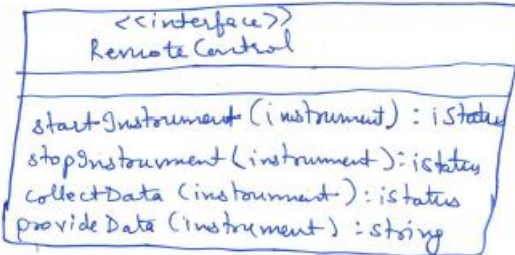 <<interface>>
Remote Control
startInstrument (instrument) : iStatus
stopInstrument (instrument) : istatus
collectData (instrument) : istatus
provideData (instrument) : string